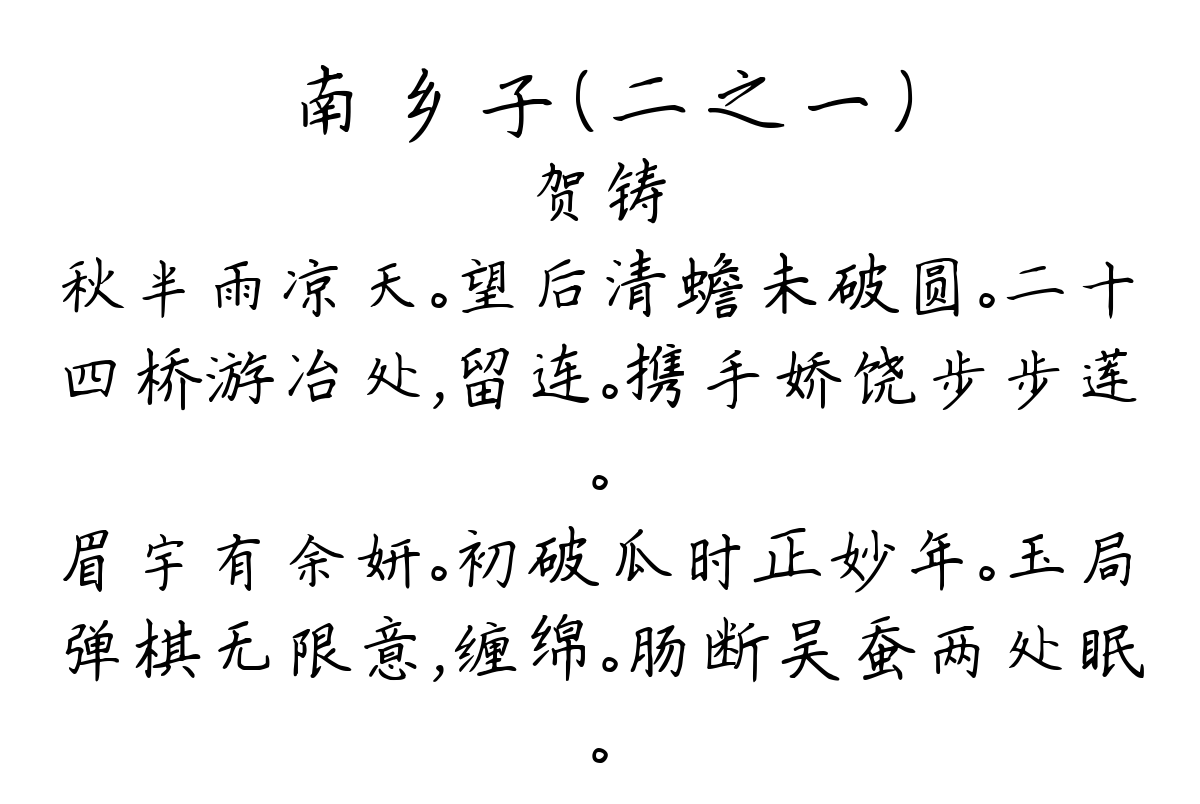 南乡子(二之一)
贺铸
秋半雨凉天。望后清蟾未破圆。二十
四桥游冶处,留连。携手娇饶步步莲
。
眉宇有余妍。初破瓜时正妙年。玉局
弹棋无限意,缠绵。肠断吴蚕两处眠
。